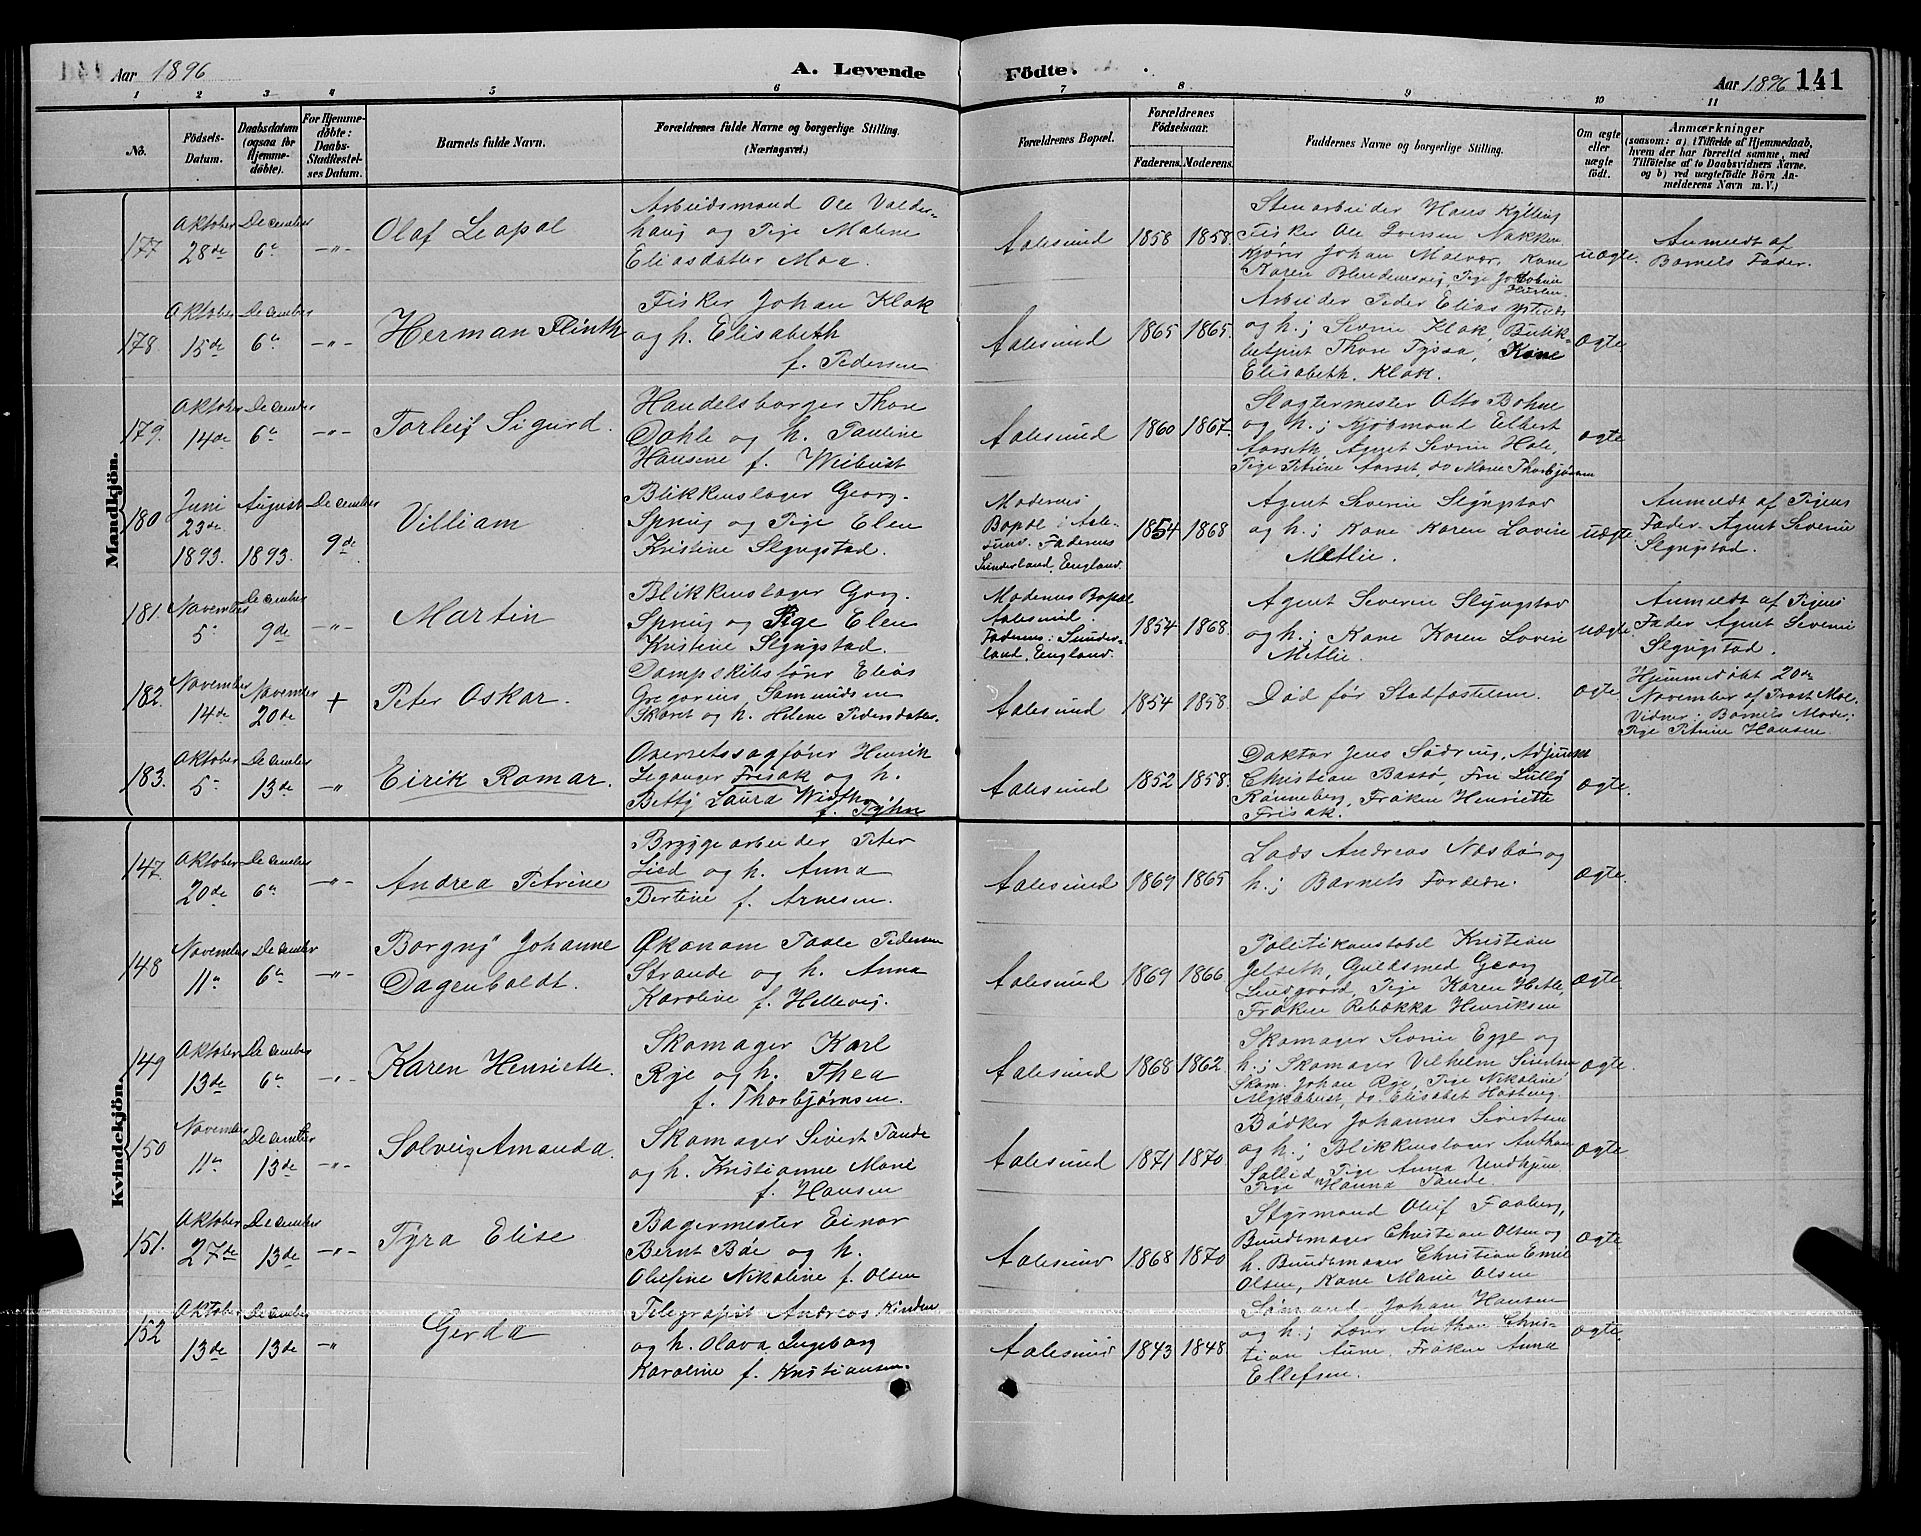 Aar 1896
A. Levende
Födte.
Aar 1896
141
1 2 3 4 5 6 7 8 9 10 11
No.
Födsels-
Datum.
Daabsdatum
(ogsaa for
Hjemme-
døbte).
For Hjemme-
døbte:
Daabs-
Stadfæstel-
ses Datum.
Barnets fulde Navn.
Forældrenes fulde Navne og borgerlige Stilling.
(Næringsvei.)
Forældrenes Bopæl.
Forældrenes
Födselsaar.
Faderens. Moderens.
Faddernes Navne og borgerlige Stilling.
Om ægte
eller
uægte
født.
Anmærkninger
(saasom: a) i Tilfælde af Hjemmedaab,
hvem der har forrettet samme, med
Tilföielse af to Daabsvidners Navne.
og b) ved uægtefödte Börn An-
melderens Navn m. V.)
Mandkjön.
177
Oktober
28de
December
6te
-"-
Olaf Leopol
Arbeidsmand Ole Valder-
haug og Pige Malene
Eliasdatter Moa.
Aalesund
1858 1858.
Stenarbeider Hans Kylling
Fisker Ole Iversen Nakken
Kjører Johan Molvær, Kone
Karen Blindemsvig, Pige
uægte.
Anmeldt af
Barnets Fader.
178.
Oktober
15de
December
6te
-"-
Herman Flinth
Fisker Johan Klok
og h. Elisabeth
f. Pedersen
Aalesund
1865 1865.
Arbeider Peder Elias
og h.; Severin Klok, Butik-
betjent Thore Tyssa, Kone
Elisabeth Klok.
ægte
179.
Oktober
14de
December
6te
-"-
Torleif Sigurd.
Handelsborger Thore
Dahle og h. Pauline
Hansine f. Weibust
Aalesund
1860 1867.
Slagtermester Otto Bohne
og h.; Kjøbmand Elbert
Aarseth, Agent Severin Hole,
Pige Petrine Aarset, do Marie Thorbjørnsen
ægte
180
Juni
23de
1893.
August
1893.
December
9de
Villiam
Blikkenslager Georg
Sprug og Pige Elen
Kristine Slyngstad.
Moderens
Bopæl: Aale-
sund. Faderens
Sunderland, England.
1854 1868
Agent Severin Slyngstad
og h.; Kone Karen Lovise
Metlie.
uægte.
Anmeldt af Pigens
Fader Agent Severin
Slyngstad.
181.
November
5te
December
9de
-"-
Martin
Blikkenslager Georg
Sprug og Pige Elen
Kristine Slyngstad.
Moderens Bopæl
Aalesund.
Faderens: Sunder-
land, England.
1854 1868.
Agent Severin Slyngstad
og h.; Kone Karen Lovise
Metlie.
uægte
Anmeldt af Pigens
Fader Agent Severin
Slyngstad.
182.
November
14de
November
20de
+
Peter Oskar.
Dampskibsfører Elias
Gregorius Samundsen
Skoret og h. Helene Pedersdatter.
Aalesund
1854 1858.
Død før Stadfæstelsen.
ægte
Hjemmedøbt 20de
November af Provst Moe.
Vidner: Barnets Moder;
Pige Petrine Hansen
183.
Oktober
5te
December
13de
-"-
Eirik Romar.
Overretssagfører Henrik
Leganger Frisak og h.
Betty Laura Wirth
f. Tyhn
Aalesund
1852 1858.
Doktor Jens Sødring, Adjunkt
Christian Bassø, Fru Lully
Rønneberg, Frøken Henriette
Frisak.
ægte.
Kvindekjön.
147.
Oktober
20de
December
6te
-"-
Andrea Petrine
Bryggearbeider Peter
Lied og h. Anna
Bertine f. Arnesen.
Aalesund
1869 1865
Lods Andreas Næsbø og
h.; Barnets Forældre.
ægte.
148
November
11te
December
6te
-"-
Borgny Johanne
Dagenboldt.
Økonom Paale Pedersen
Strande og h. Anna
Karoline f. Hellevig.
Aalesund
1869 1866
Politikonstabel Kristian
Jelseth, Guldsmed Georg
Lindgaard, Pige Karen Hetle,
Frøken Rebekka Henriksen
ægte.
149
Oktober
13de
December
6te
-"-
Karen Henriette.
Skomager Karl
Rye og h. Thea
f. Thorbjørnsen.
Aalesund
1868 1862.
Skomager Severin Egge og
h.; Skomager Vilhelm Sivertsen
Skom. Johan Rye, Pige Nikoline
Myklebust, do Elisabet
ægte.
150
November
11te
December
13de
-"-
Solveig Amanda.
Skomager Sivert Tande
og h. Kristianne Marie
f. Hansen
Aalesund
1871 1870
Bødker Johannes Sivertsen
og h.; Blikkenslager Anthon
Sollid, Pige Anna Undhjem
Pige Hanna Tande.
ægte.
151.
Oktober
27de
December
13de
-"-
Tyra Elise
Bagermester Einar
Bernt Bøe og h.
Olufine Nikoline f. Olsen
Aalesund
1868 1870
Styrmand Oluf Faaberg,
Bundtmager Christian Olsen og
h. Bundtmager Christian Emil
Olsen, Kone Marie Olsen
ægte.
152
Oktober
13de
December
13de
-"-
Gerda
Telegrafist Andreas Kinden
og h. Olava Ingeborg
Karoline f. Kristiansen.
Aalesund
1843 1848
Sømand Johan Hansen
og h.; Lærer Anthon Chris-
tian Aune, Frøken Anna
Ellefsen.
ægte.